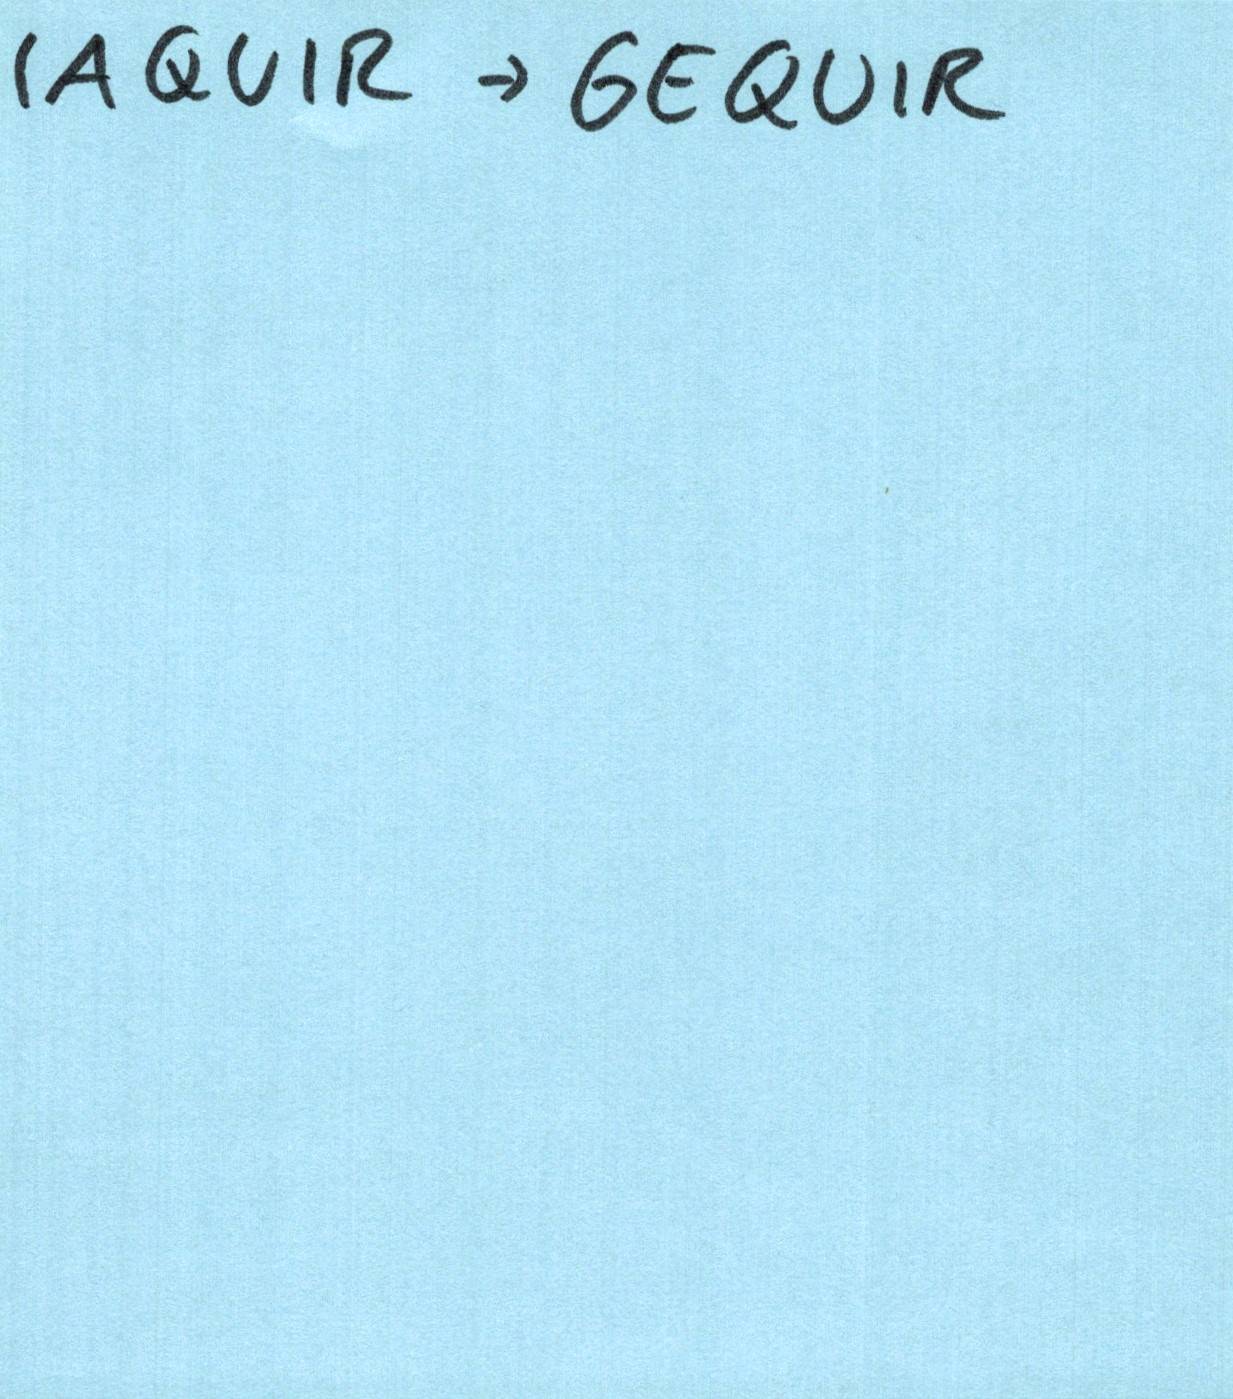 IAQUIR → GEQUIR